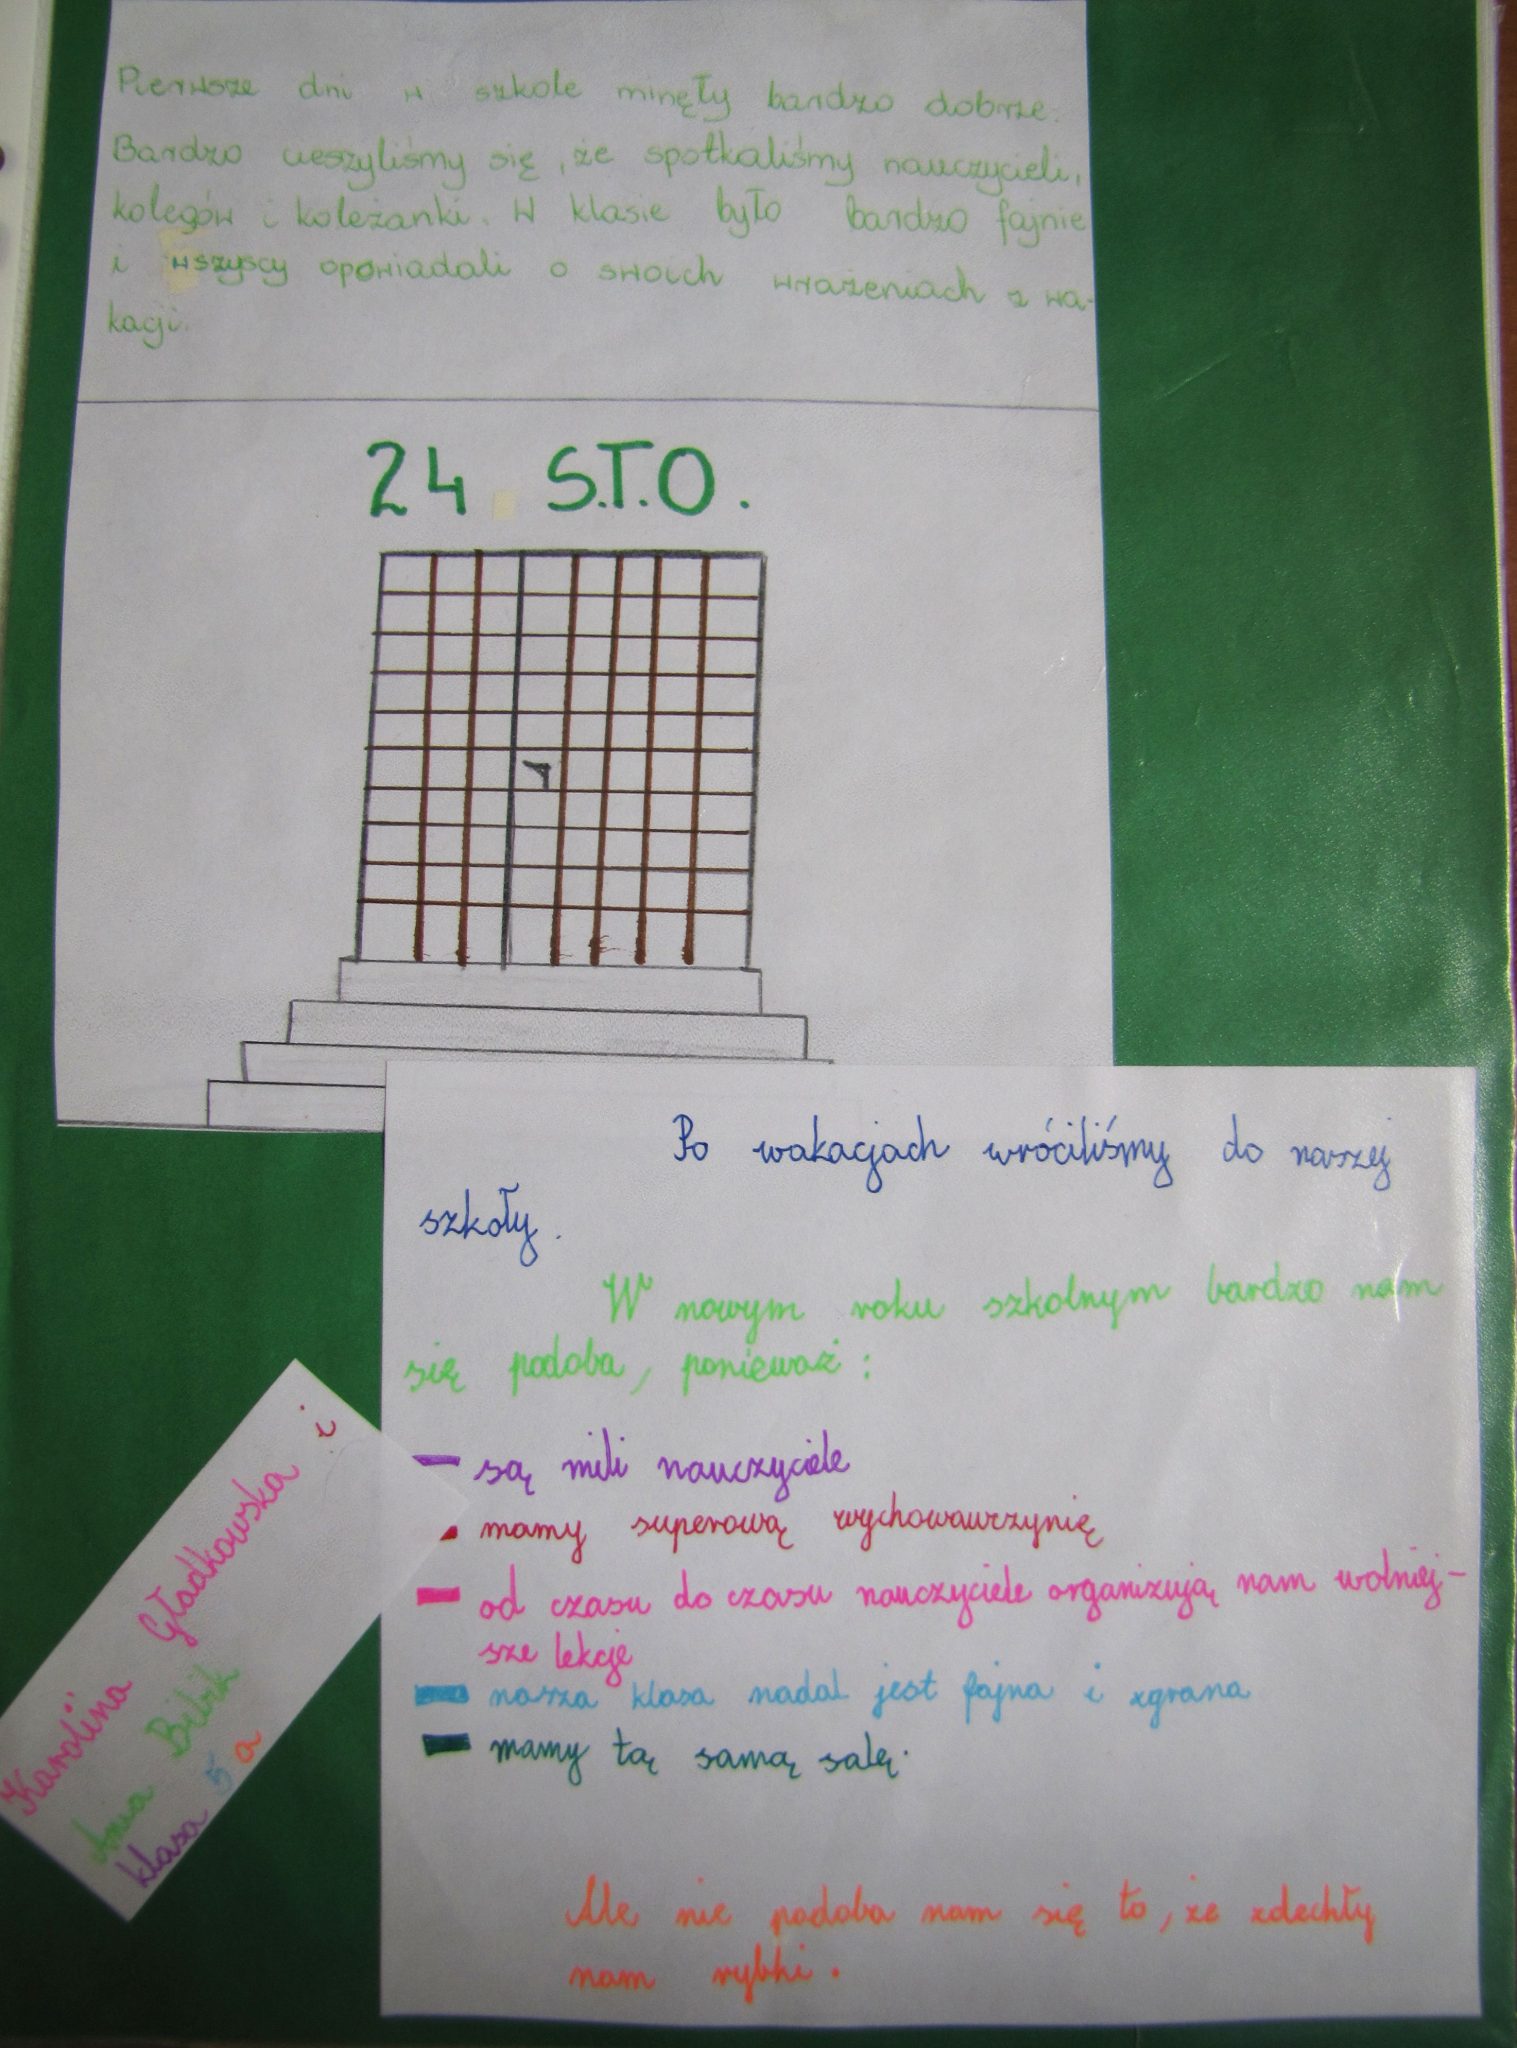 Pierwsze dni w szkole minęły bardzo dobrze.
Bardzo cieszyliśmy się, że spotkaliśmy nauczycieli,
kolegów i koleżanki. W klasie było bardzo fajnie
i wszyscy opowiadali o swoich wrażeniach z wa-
kacji.
24 S.T.O.
Po wakacjach wróciliśmy do naszej
szkoły.
W nowym roku szkolnym bardzo nam
się podoba, ponieważ:
- są mili nauczyciele
- mamy superową wychowawczynię
- od czasu do czasu nauczyciele organizują nam wolniej-
sze lekcje
- nasza klasa nadal jest fajna i zgrana
- mamy tą samą salę.
Ale nie podoba nam się to, że zdechły
nam rybki.
Karolina Gładkowska i
Anna Bibik
klasa 5 a